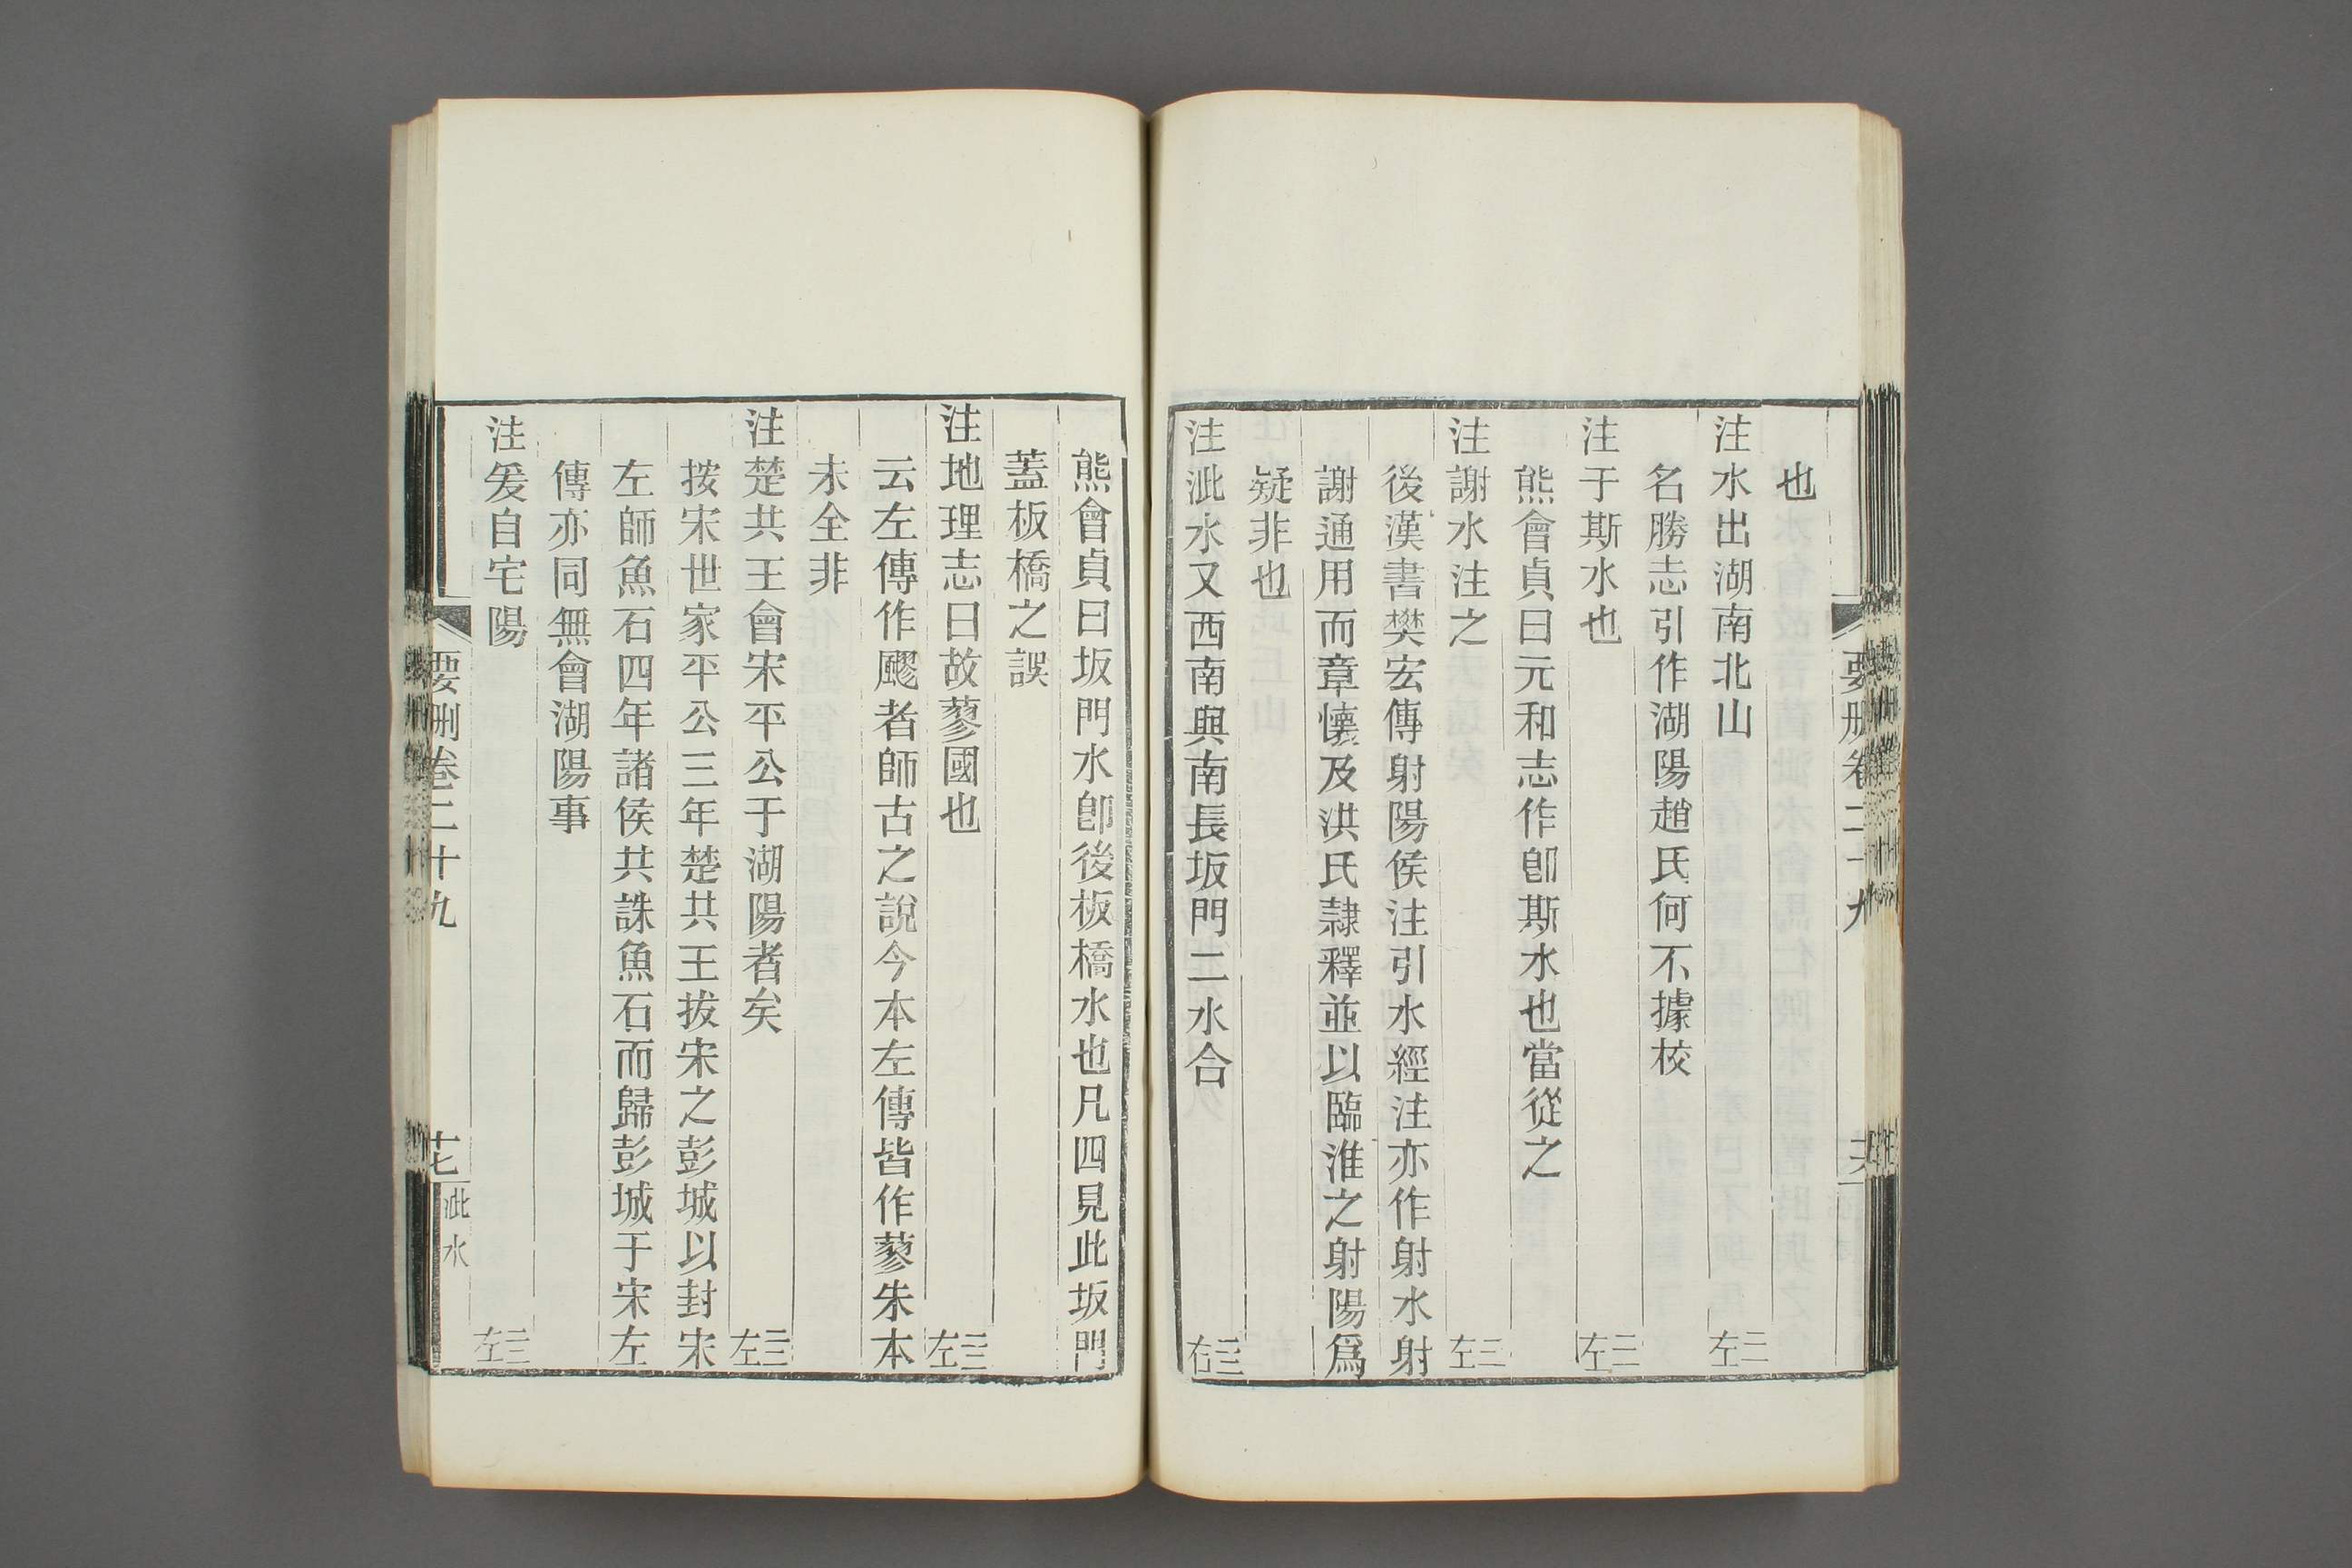 要刪卷二十九
十六
也
注水出湖南北山 二左
名勝志引作湖陽趙氏何不據校
注于斯水也 二左
熊會貞曰元和志作卽斯水也當從之
注謝水注之 二左
後漢書樊宏傳射陽侯注引水經注亦作射水射
謝通用而章懷及洪氏隷釋並以臨淮之射陽爲
疑非也
注泚水又西南與南長坂門二水合 三右
熊會貞曰坂門水卽後板橋水也凡四見此坂門
蓋板橋之誤
注地理志曰故蓼國也 三左
云左傳作飂者師古之說今本左傳皆作蓼朱本
未全非
注楚共王會宋平公于湖陽者矣 三左
按宋世家平公三年楚共王拔宋之彭城以封宋
左師魚石四年諸侯共誅魚石而歸彭城于宋左
傳亦同無會湖陽事
注爰自宅陽 三左
要刪卷二十九
十七
泚水